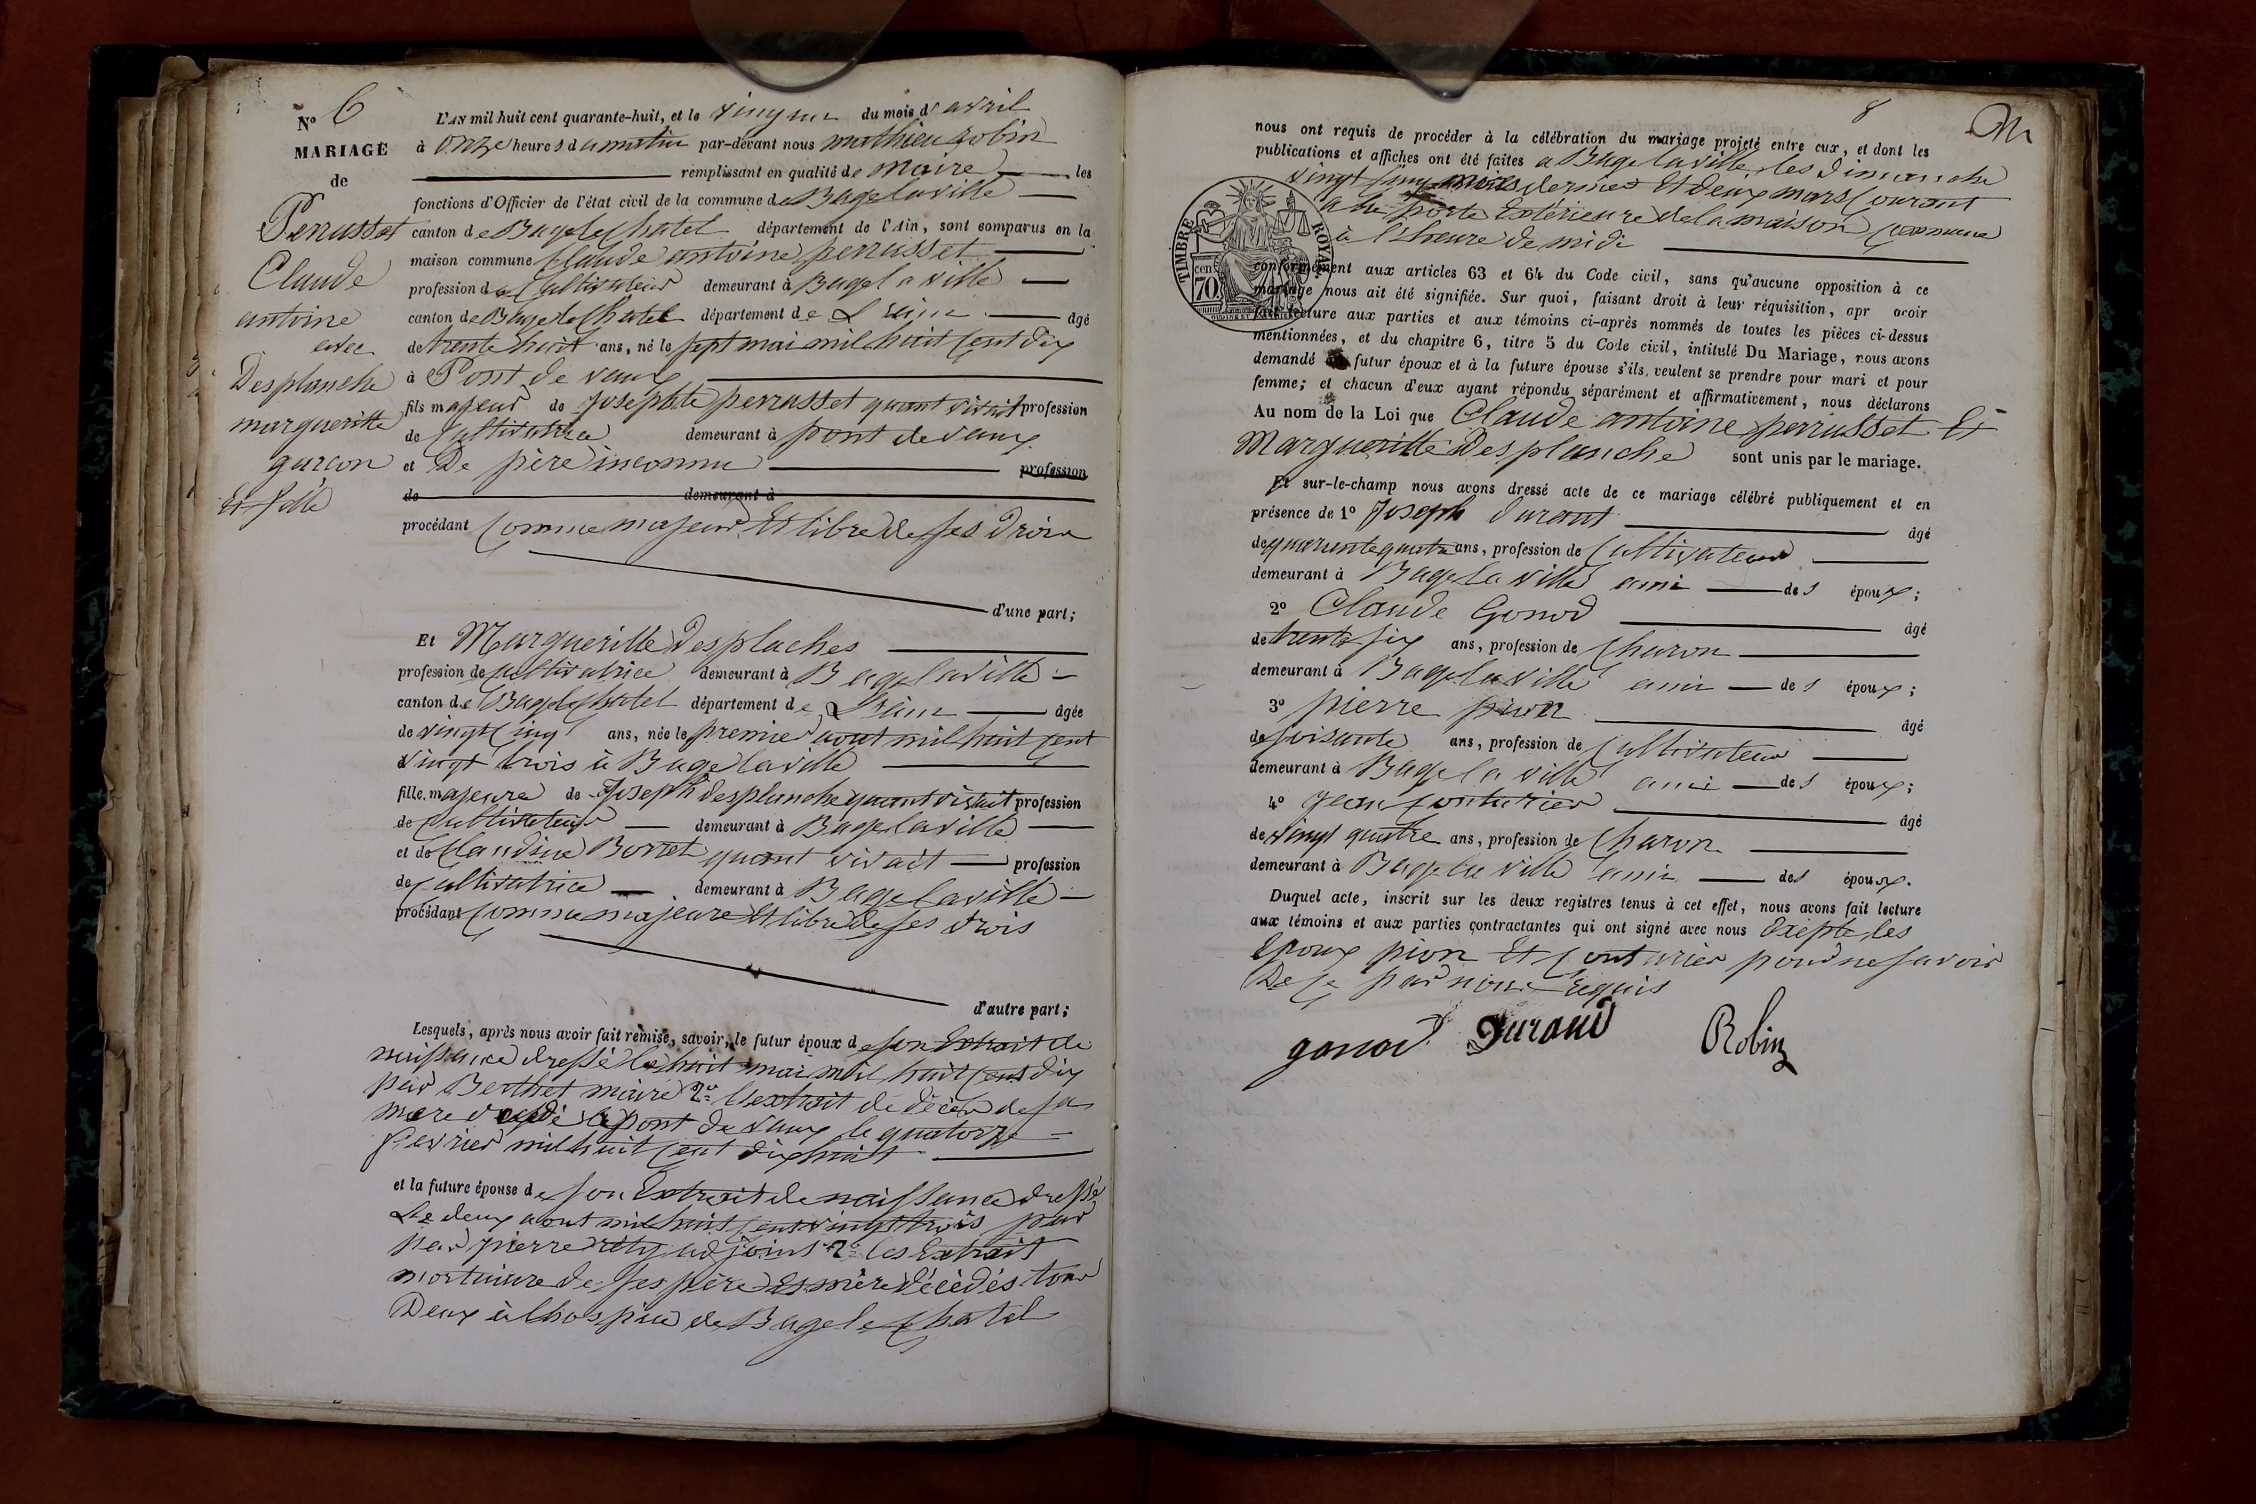 N° 6
MARIAGE
de
Perrusset
Claude
antoine
avec
Desplanche
margueritte
garcon
Et fille
L'AN mil huit cent quarante-huit, et le du mois d'avril
à onze heures du matin par-devant nous mathieu Robin
remplissant en qualité de Maire les
fonctions d'Officier de l'état civil de la commune de Bagelaville
canton de Bagelechatel département de l'Ain, sont comparus en la
maison commune Claude antoine perrusset
profession de Cultivateur demeurant à Bagelaville
canton de Bagelechatel département de L'ain âgé
de trente huit ans, né le sept mai mil huit Cent dix
à Pont de vaux
fils majeur de Josephte perrusset quant vivait profession
de Cultivatrice demeurant à pont de vaux
et De père inconnu profession
de demeurant à
procédant Comme majeur Et libre de ses Droix
d'une part;
Et Margueritte Desplaches
profession de Cultivatrice demeurant à Bagelaville
canton de Bagelechatel département de L'ain âgée
de vingt Cinq ans, née le premier aout mil huit Cent
vingt trois à Bagelaville
fille majeure de Joseph Desplanche quant vivait profession
de Cultivateur demeurant à Bagelaville
et de Claudine Borret quant vivait profession
de Cultivatrice demeurant à Bagelaville
procédant Comme majeure Et libre de ses drois
d'autre part;
Lesquels, après nous avoir fait remise, savoir, le futur époux de son Extrait de
naissance dressé le huit mai mil huit Cent dix
par Berthet maire 2° l'extrait de décès de sa
mere à pont de vaux le quatorze
fevrier mil huit Cent dix huit
et la future épouse de son Extrait de naissance dressé
Le deux aout mil huit Cent vingt trois par
par pierre adjoint 2° les Extrait
mortuaire de ses père Et mère décédés tous
Deux à lhospice de Bagelechatel
8
nous ont requis de procéder à la célébration du mariage projeté entre eux, et dont les
publications et affiches ont été faites a Bagelaville les dimanche
vingt Cinq dernier Et deux mars Courant
a la porte Extérieure de la maison Commune
à l'heure de midi
TIMBRE ROYAL
cen. 70
conformément aux articles 63 et 64 du Code civil, sans qu'aucune opposition à ce
mariage nous ait été signifiée. Sur quoi, faisant droit à leur réquisition, apr avoir
fait lecture aux parties et aux témoins ci-après nommés de toutes les pièces ci-dessus
mentionnées, et du chapitre 6, titre 5 du Code civil, intitulé Du Mariage, nous avons
demandé au futur époux et à la future épouse s'ils veulent se prendre pour mari et pour
femme; et chacun d'eux ayant répondu séparément et affirmativement, nous déclarons
Au nom de la Loi que Claude antoine perrusset Et
Margueritte Desplanche sont unis par le mariage.
Et sur-le-champ nous avons dressé acte de ce mariage célébré publiquement et en
présence de 1° Joseph durant âgé
de quarente quatre ans, profession de Cultivateur
demeurant à Bagelaville ami des époux;
2° Claude Gonod âgé
de trente six ans, profession de Charon
demeurant à Bagelaville ami des époux;
3° pierre pion âgé
de soisante ans, profession de Cultivateur
demeurant à Bagelaville ami des époux;
4° Jean Couturier âgé
de vingt quatre ans, profession de Charon
demeurant à Bagelaville ami des époux.
Duquel acte, inscrit sur les deux registres tenus à cet effet, nous avons fait lecture
aux témoins et aux parties contractantes qui ont signé avec nous Exepte les
Epoux pion Et Couturier pour ne savoir
De ce par nous Requis
gonod Durand Robin